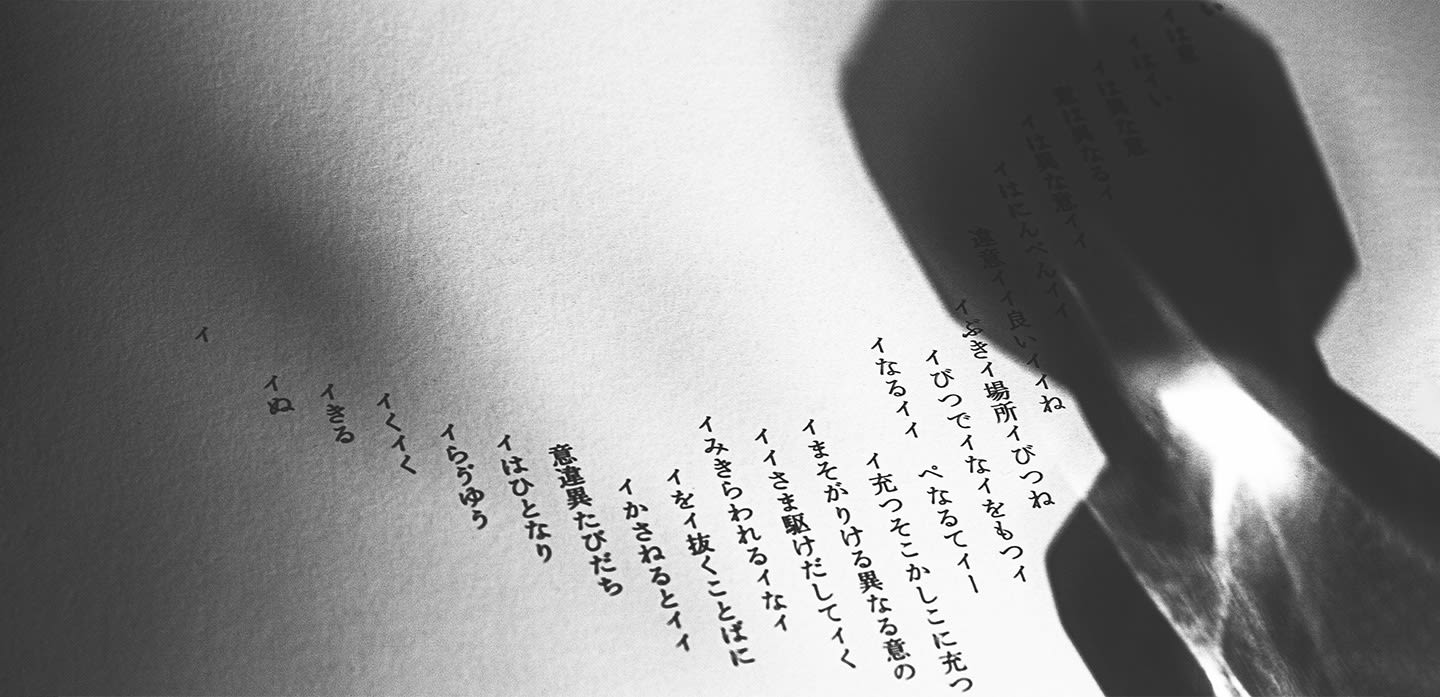 い
イは意
イはイい
イは異な意
意は異なるイ
イは異な意イイ
イはにんべんイイ
違意イイ良いイイね
イぶきイ場所イびつね
イびつでイなイをもつイ
イなるイイ　ペなるてィー
イ充つそこかしこに充つ
イまそがりける異なる意の
イイさま駆けだしてイく
イみきらわれるイなイ
イをイ抜くことばに
イかさねるとイイ
意違異たびだち
イはひとなり
イらゔゆう
イくイく
イきる
イぬ
イ